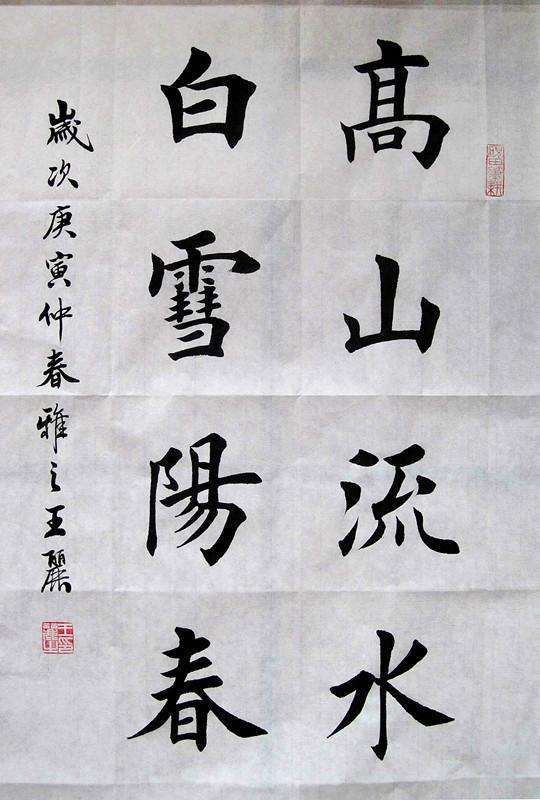 髙山流水
白雪陽春
歲次庚寅仲春雅之王麗